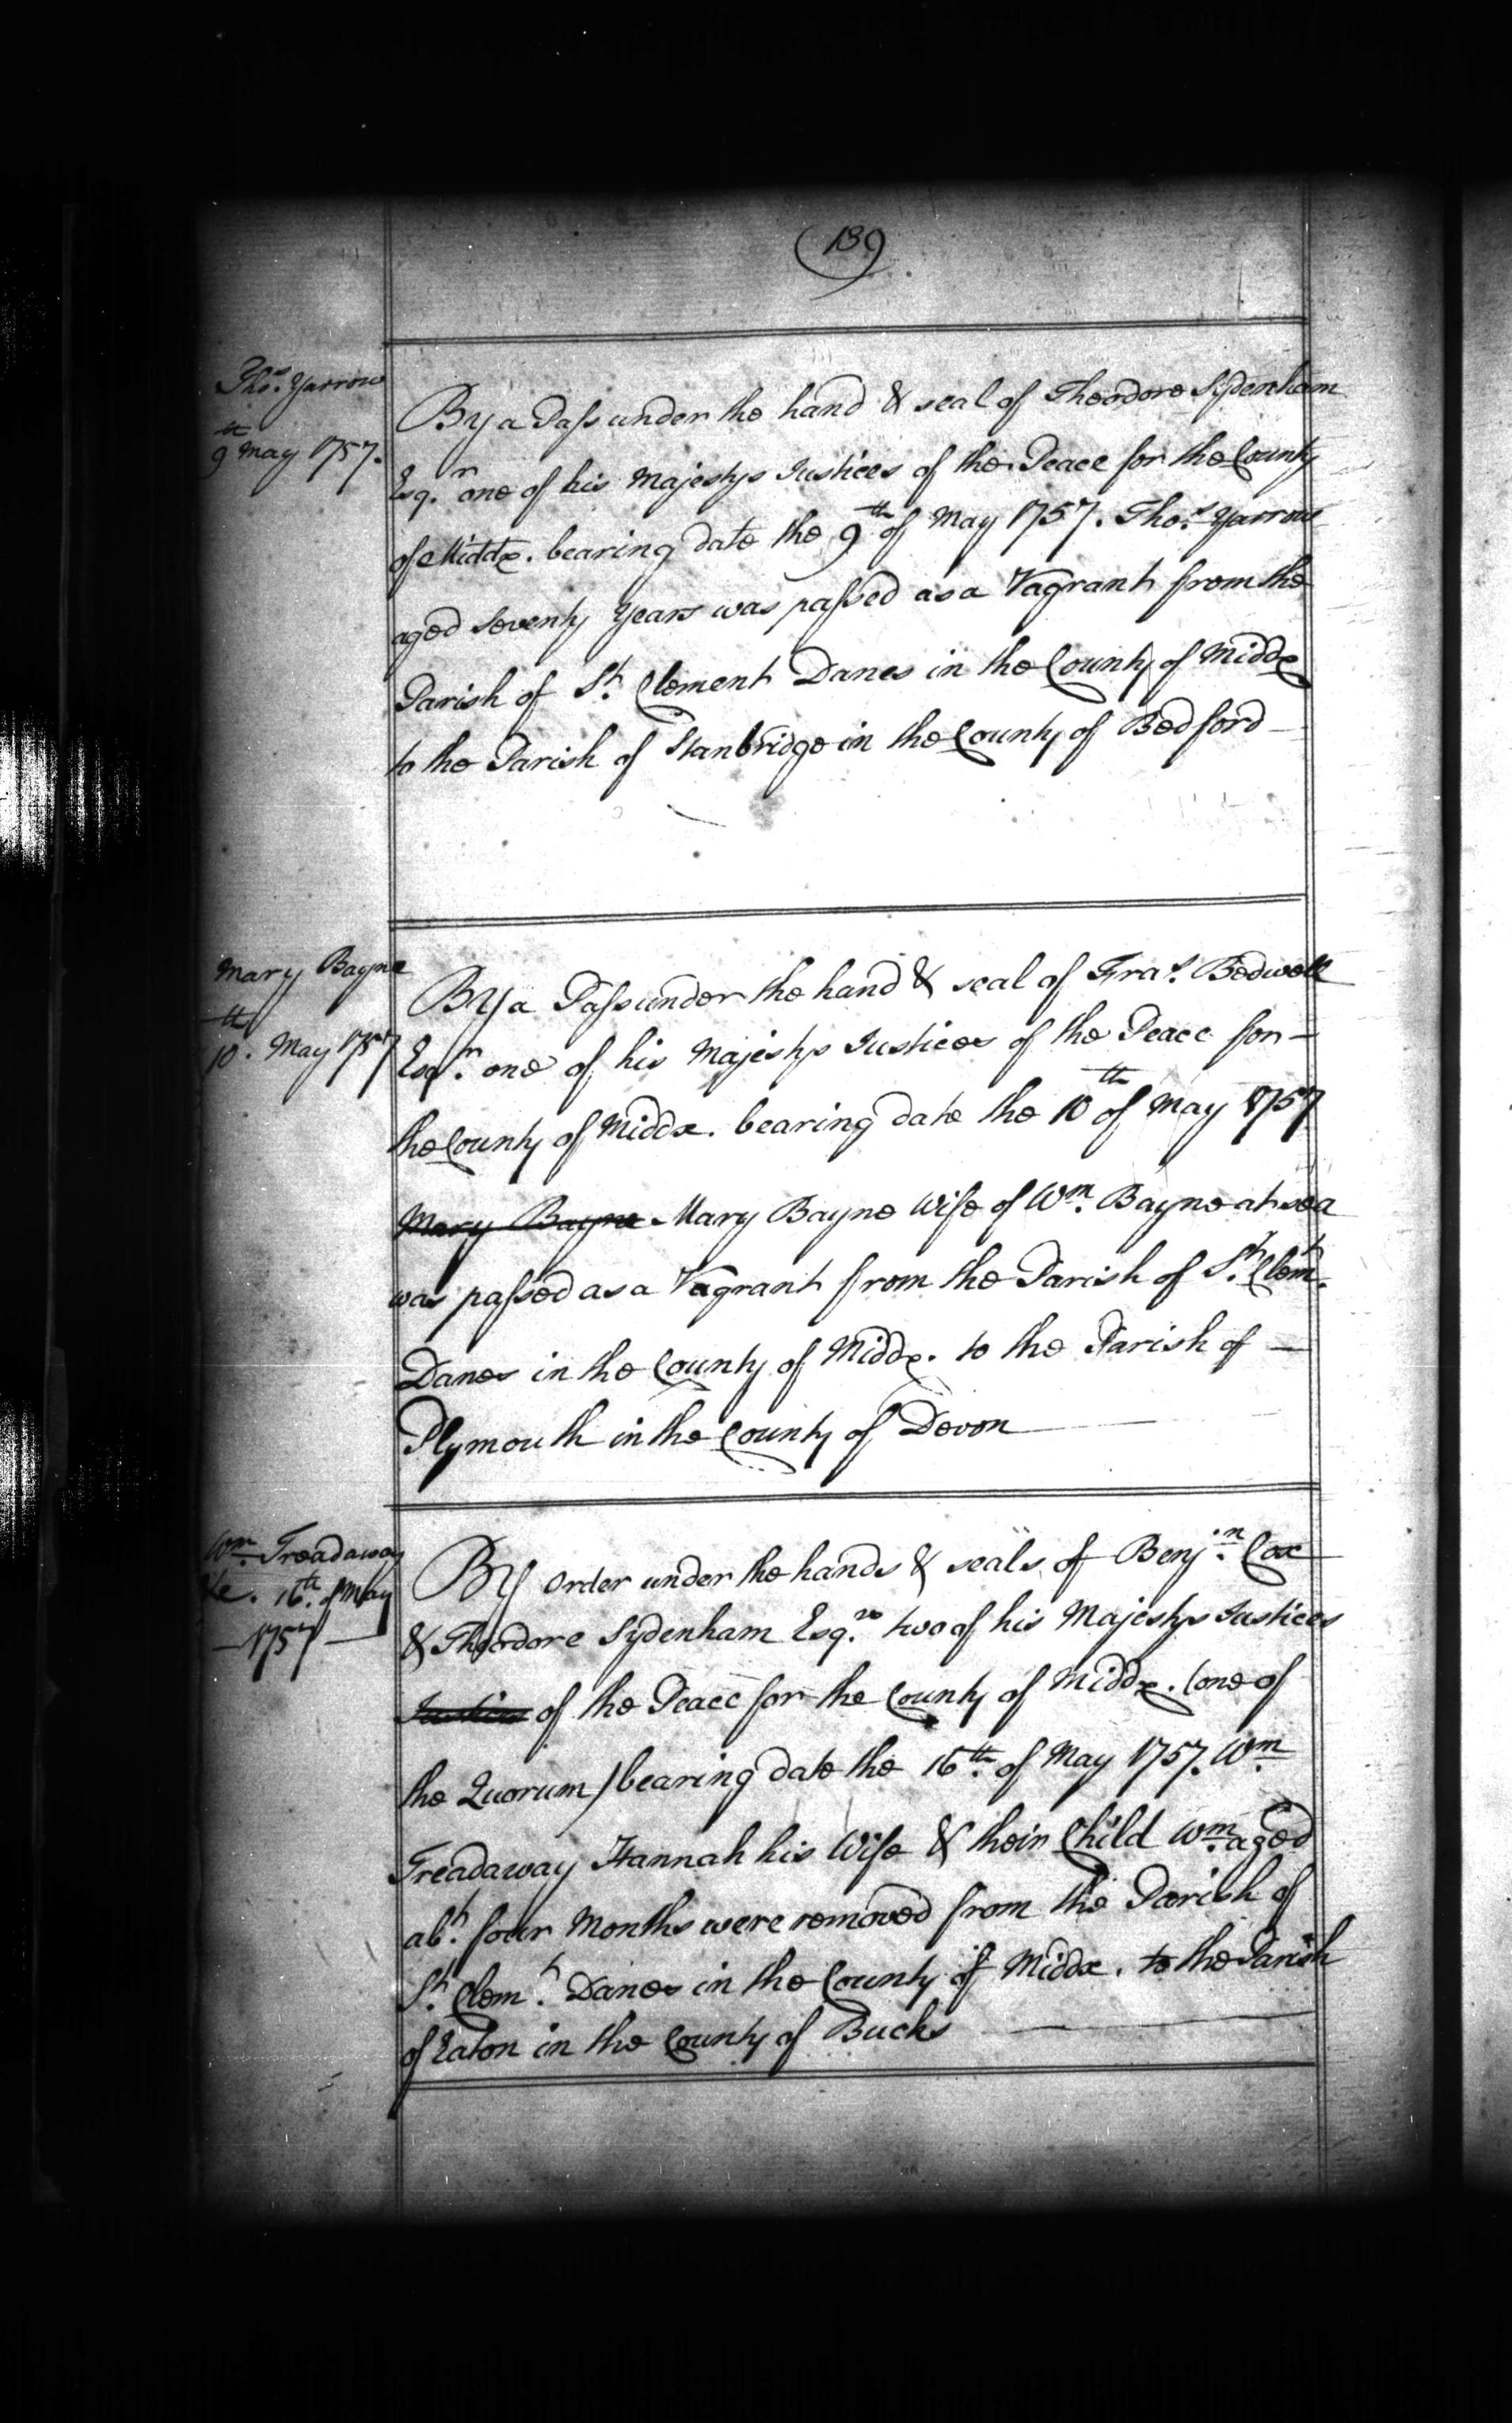 139
Thos. Yarrow
9th May 1757.
By a Pass under the hand & seal of Theodore Sydenham
Esqr. one of his Majestys Justices of the Peace for the County
of Middx. bearing date the 9th of May 1757. Thos. Yarrow
aged seventy Years was passed as a Vagrant from the
Parish of St. Clement Danes in the County of Middx
to the Parish of Stanbridge in the County of Bedford
Mary Bayne
10th. May 1757
By a Pass under the hand & seal of Fras. Bedwell
Esqr. one of his Majestys Justices of the Peace for
the County of Middx. bearing date the 10th of May 1757
Mary Bayne Mary Bayne Wife of Wm. Bayne at sea
was passed as a Vagrant from the Parish of St. Clemt.
Danes in the County of Middx. to the Parish of
Plymouth in the County of Devon
Wm. Treadaway
&c. 16th. of May
1757
By Order under the hands & seals of Benjn. Cox
& Theodore Sydenham Esqrs. two of his Majestys Justices
Justices of the Peace for the County of Middx. (one of
the Quorum) bearing date the 16th. of May 1757. Wm.
Treadaway Hannah his Wife & their Child Wm. aged
abt. four Months were removed from the Parish of
St. Clemt. Danes in the County of Middx. to the Parish
of Eaton in the County of Bucks